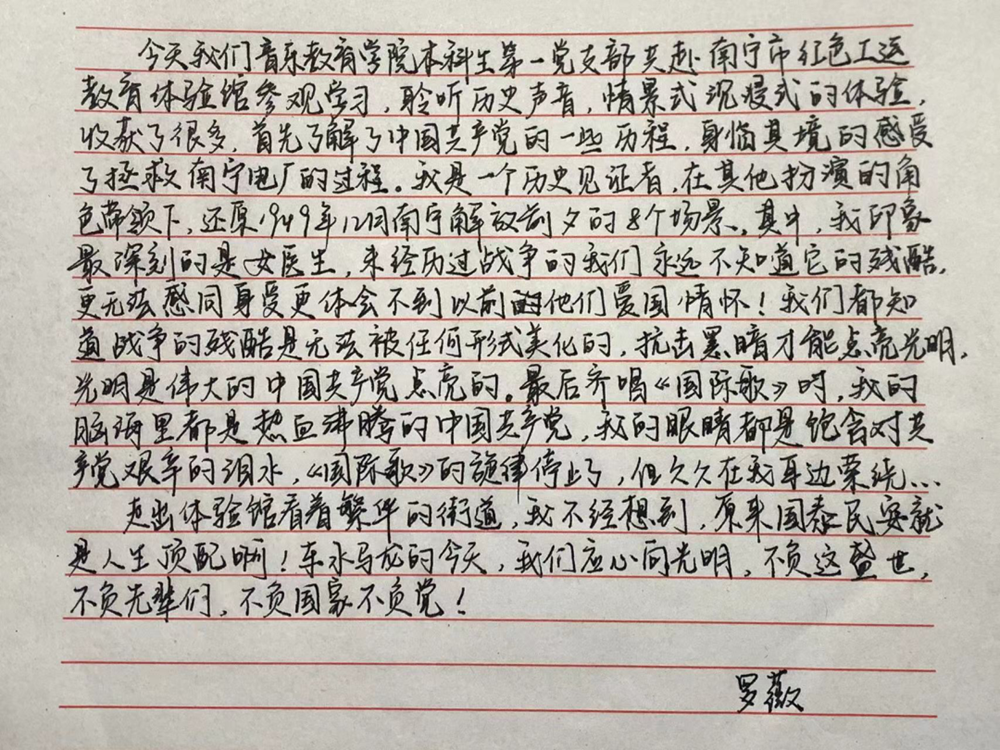 今天我们音乐教育学院本科生第一党支部共赴南宁市红色工运
教育体验馆参观学习，聆听历史声音，情景式沉浸式的体验，
收获了很多，首先了解了中国共产党的一些历程，身临其境的感受
了拯救南宁电厂的过程。我是一个历史见证者，在其他扮演的角
色带领下，还原1949年12月南宁解放前夕的8个场景。其中，我印象
最深刻的是女医生，未经历过战争的我们永远不知道它的残酷，
更无法感同身受更体会不到以前的他们爱国情怀！我们都知
道战争的残酷是无法被任何形式美化的，抗击黑暗才能点亮光明，
光明是伟大的中国共产党点亮的。最后齐唱《国际歌》时，我的
脑海里都是热血沸腾的中国共产党，我的眼睛都是饱含对共
产党艰辛的泪水，《国际歌》的旋律停止了，但久久在我耳边萦绕...
走出体验馆看着繁华的街道，我不经想到，原来国泰民安就
是人生顶配啊！车水马龙的今天，我们应心向光明，不负这盛世，
不负先辈们，不负国家不负党！
罗薇